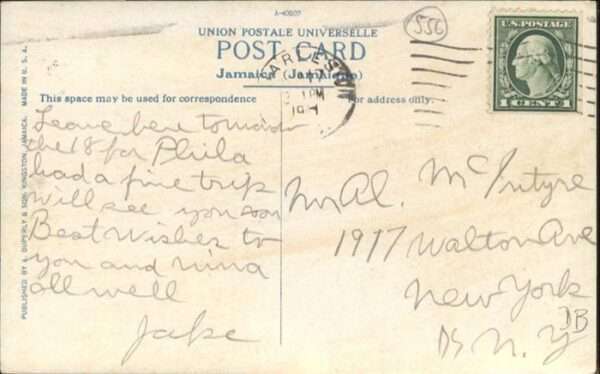 A-40807
556
UNION POSTALE UNIVERSELLE
POST CARD
Jamaica (Jamaique)
U.S. POSTAGE
1 CENT 1
MADE IN U. S. A.
PUBLISHED BY A. DUPERLY & SON, KINGSTON, JAMAICA.
This space may be used for correspondence
For address only.
1 PM
Leave here
the 18 for Phila
had a fine trip
will see you soon
Best wishes to
you and nina
all well
Jake
Mr Al. McIntyre
1917 Walton Ave
New York
N. Y
DB